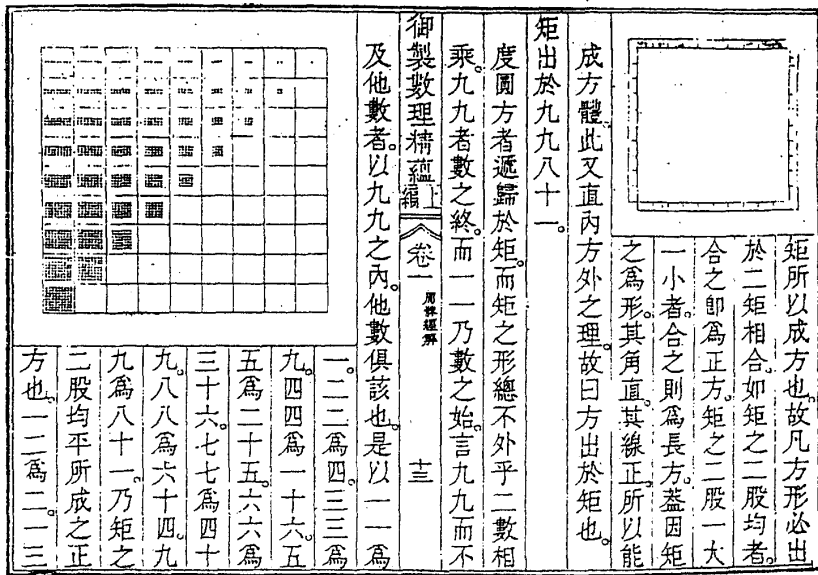 矩所以成方也。故凡方形必出
於二矩相合。如矩之二股均者。
合之卽爲正方。矩之二股一大
一小者。合之則爲長方。葢因矩
之爲形。其角直。其線正。所以能
成方體。此又直內方外之理。故曰方出於矩也。
矩出於九九八十一。
度圓方者遞歸於矩。而矩之形總不外乎二數相
乘。九九者數之終。而一一乃數之始。言九九而不
御製數理精蘊 上編 卷一 周髀經解 十三
及他數者。以九九之內。他數俱該也。是以一一爲
一。二二爲四。三三爲
九。四四爲一十六。五
五爲二十五。六六爲
三十六。七七爲四十
九。八八爲六十四。九
九爲八十一。乃矩之
二股均平所成之正
方也。一二爲二。一三